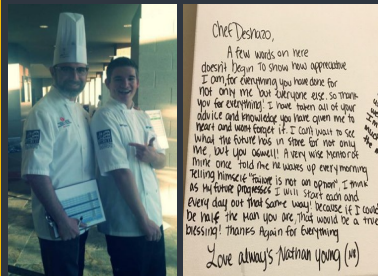 Chef Deshazo,
A few words on here
doesn't begin to show how appreciative
I am, for everything you have done for
not only me but everyone else. So thank
you for everything! I have taken all of your
advice and knowledge you have given me to
heart and wont forget it. I can't wait to see
what the future has in store for not only
me but you aswell! A very wise mentor of
mine once told me he wakes up every morning
telling himself "failure is not an option", I think
as my future progresses I will start each and
every day out that same way! because if I could
be half the man you are, that would be a true
blessing! Thanks Again for Everything
Love always - Nathan Young